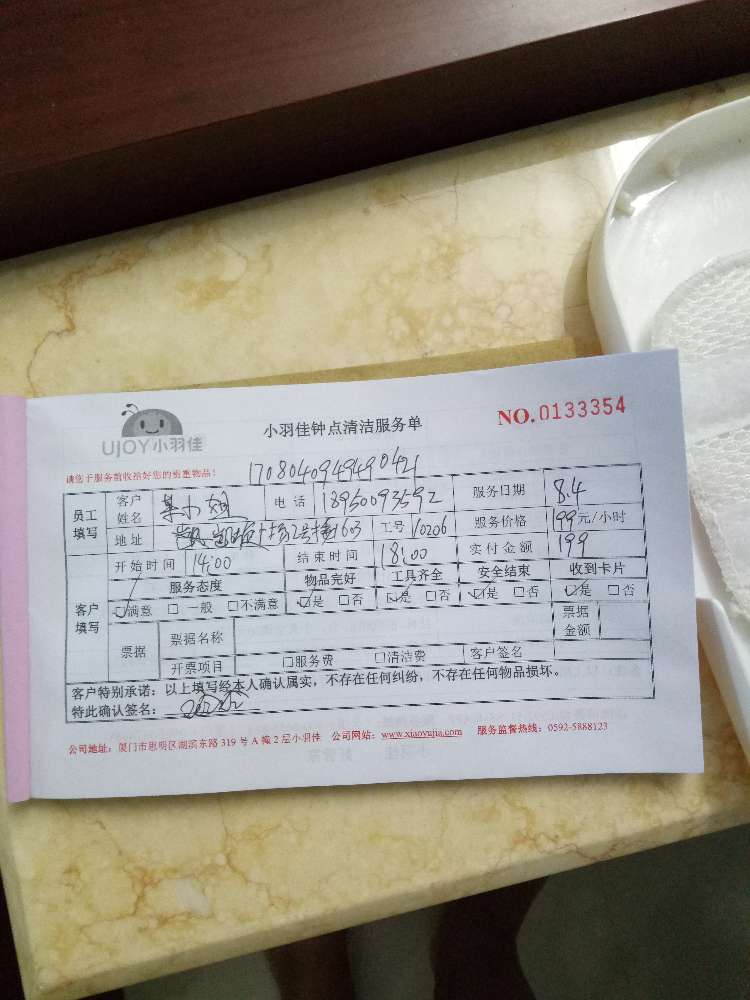 UJOY小羽佳
小羽佳钟点清洁服务单
NO.0133354
请您于服务前收拾好您的贵重物品!
1708040949490421
员工填写 客户姓名 小姐 电话 18950093592 服务日期 8.4
地址 2号楼1603 工号 10206 服务价格 199元/小时
开始时间 14:00 结束时间 18:00 实付金额 199
客户填写 服务态度 物品完好 工具齐全 安全结束 收到卡片
☑满意 □一般 □不满意 ☑是 □否 ☑是 □否 ☑是 □否 ☑是 □否
票据 票据名称 票据金额
开票项目 □服务费 □清洁费 客户签名
客户特别承诺:以上填写经本人确认属实,不存在任何纠纷,不存在任何物品损坏。
特此确认签名:
公司地址:厦门市思明区湖滨东路 319 号 A 幢 2 层小羽佳 公司网站:www.xiaoyujia.com 服务监督热线:0592-5888123